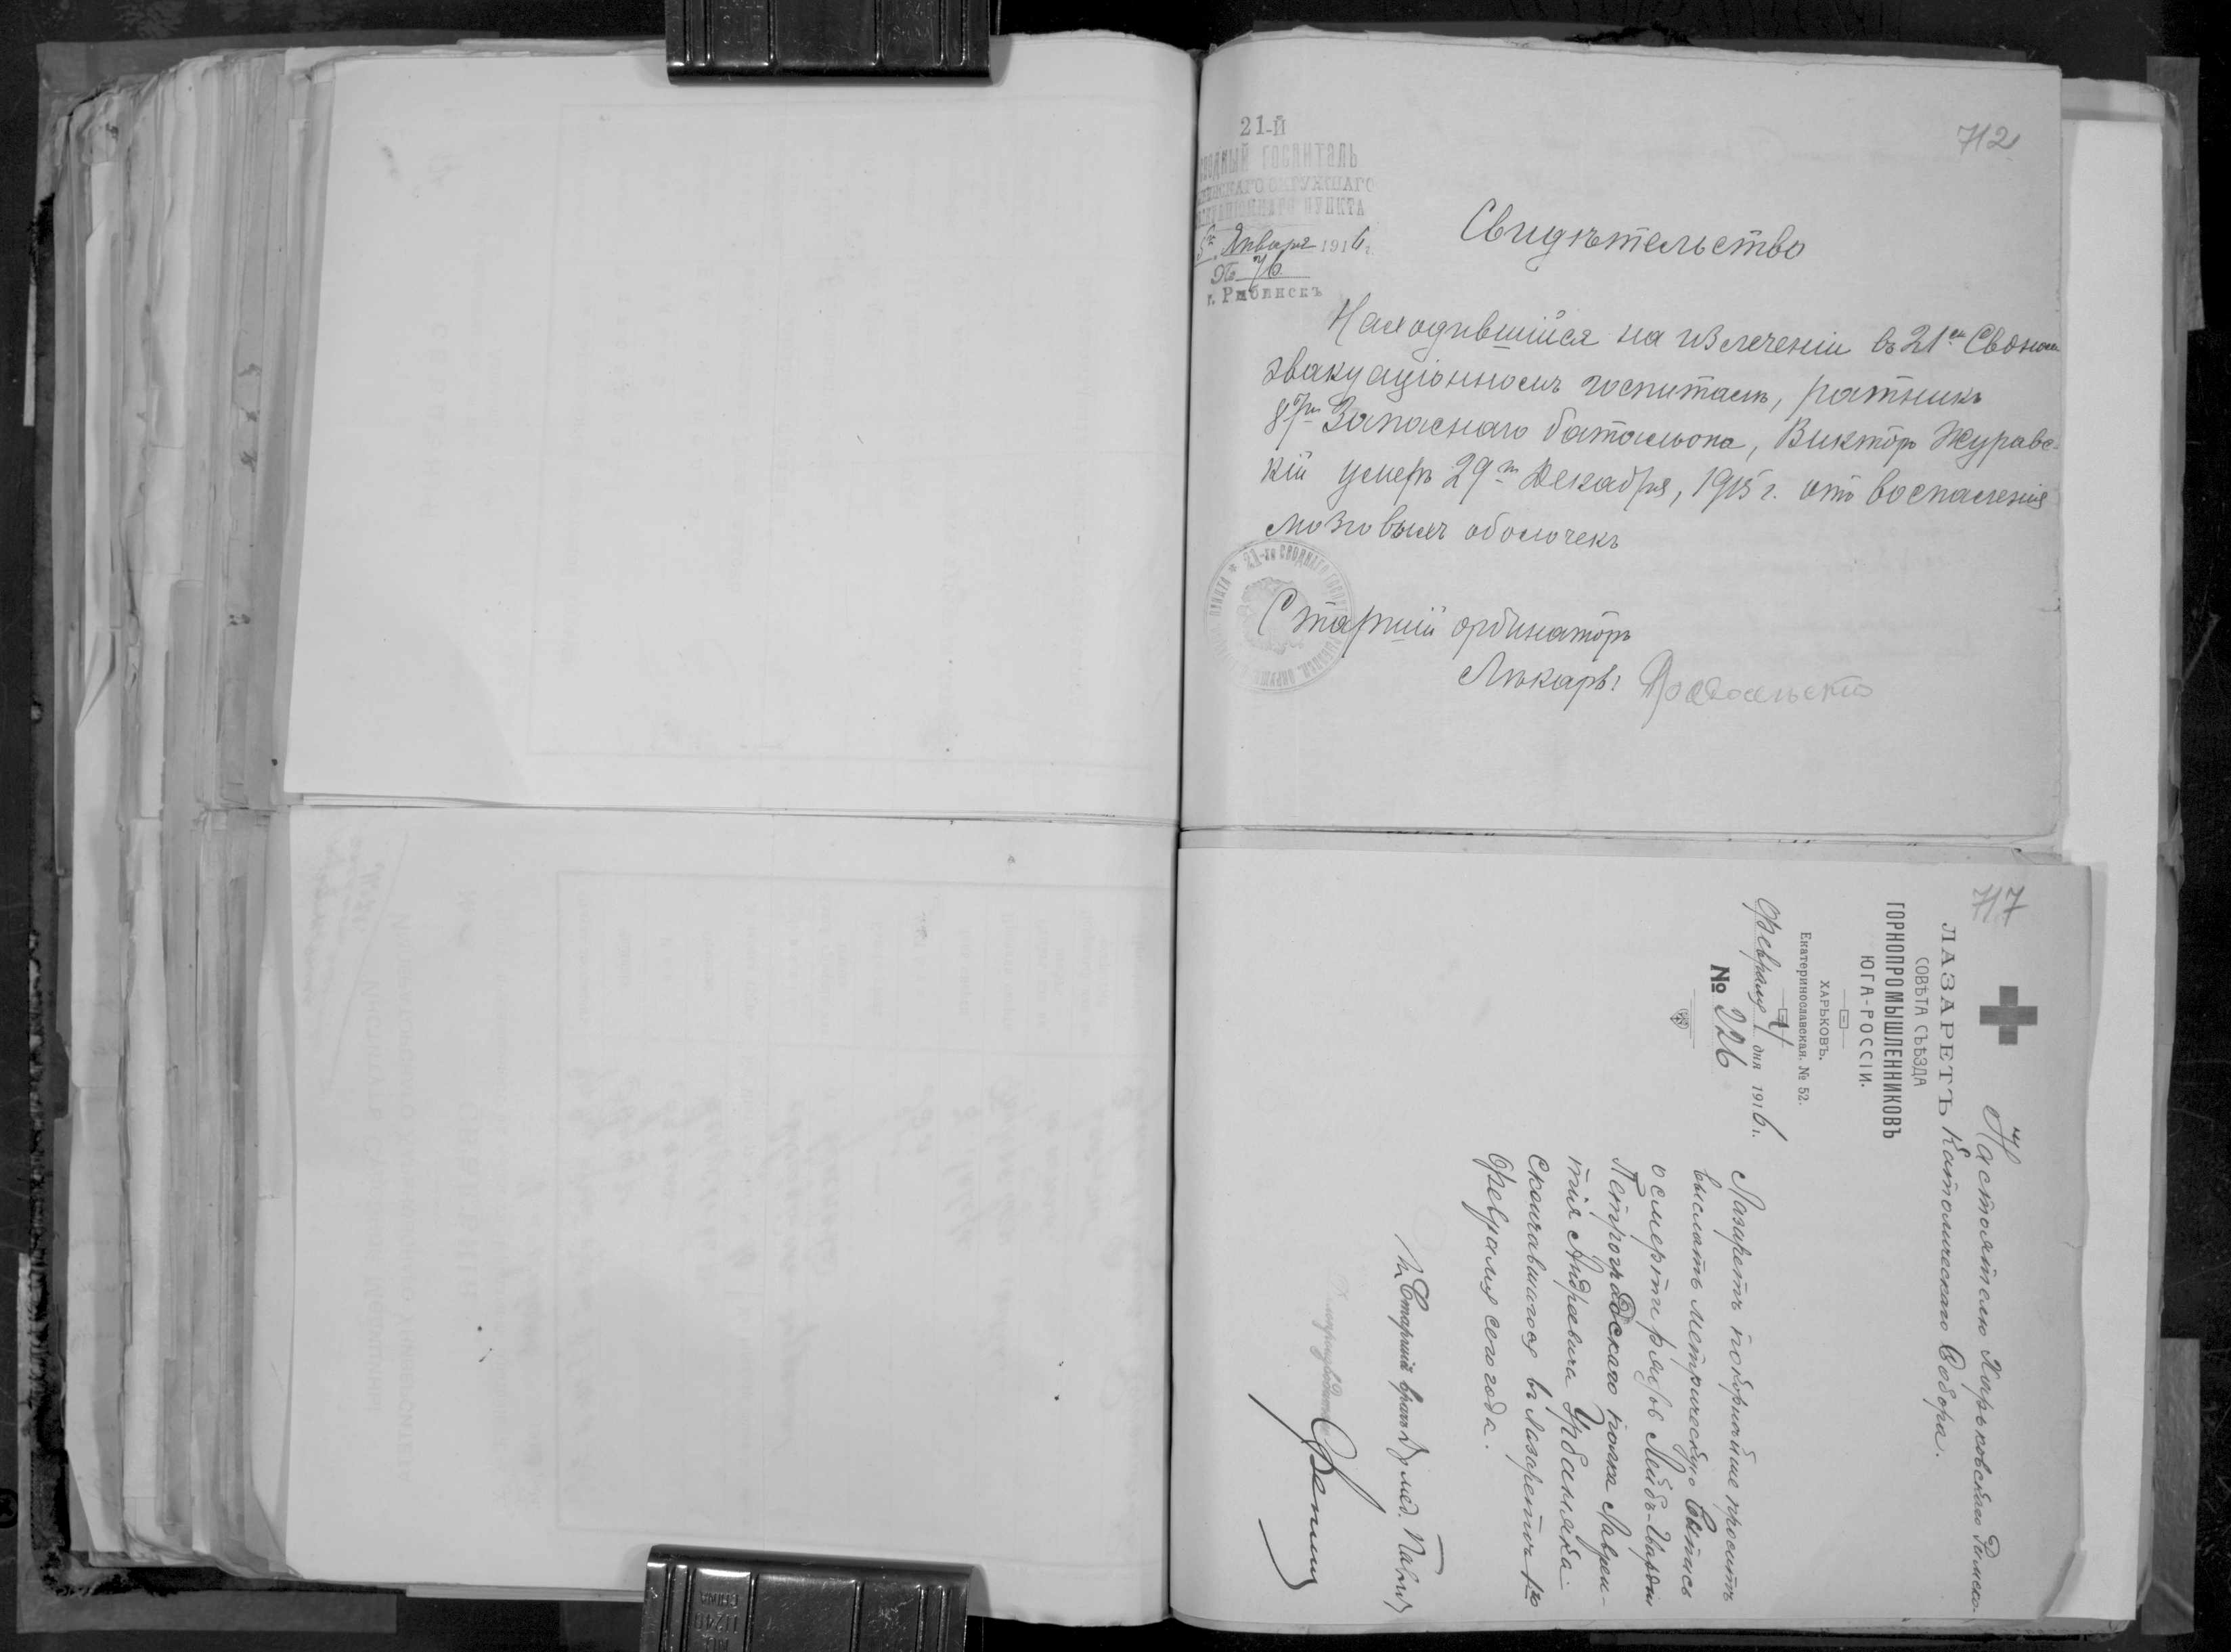 712
21-й
СВОДНЫЙ ГОСПИТАЛЬ
ОКРУЖНАГО
ПУНКТА
5го Января 1916 г.
№ 76
г. Рыбинскъ
Свидѣтельство
Находившійся на излеченіи въ 21м Сводном
эвакуаціонномъ госпиталѣ, ратникъ
Запаснаго батальона, Викторъ Журавс-
кій умеръ 29го Декабря, 1915 г. отъ воспаленія
мозговыхъ оболочекъ
21-го СВОДНАГО ПУНКТА
Старшій ординаторъ
Лѣкарь:
717
ЛАЗАРЕТЪ
СОВѢТА СЪѢЗДА
ГОРНОПРОМЫШЛЕННИКОВЪ
ЮГА-РОССІИ.
ХАРЬКОВЪ.
Екатеринославская, № 52.
Февраля 4 дня 1916 г.
№ 226
Настоятелю Харьковскаго Римско-
Католическаго Собора.
Лазаретъ покорнѣйше проситъ
выслать метрическую выпись
о смерти рядов. Лейбъ-Гвардіи
Петроградскаго полка Лаврен-
тія Андреевича Урбаняка
скончавшагося въ Лазаретѣ
Февраля сего года.
Старшій врачъ Д-ръ мед.